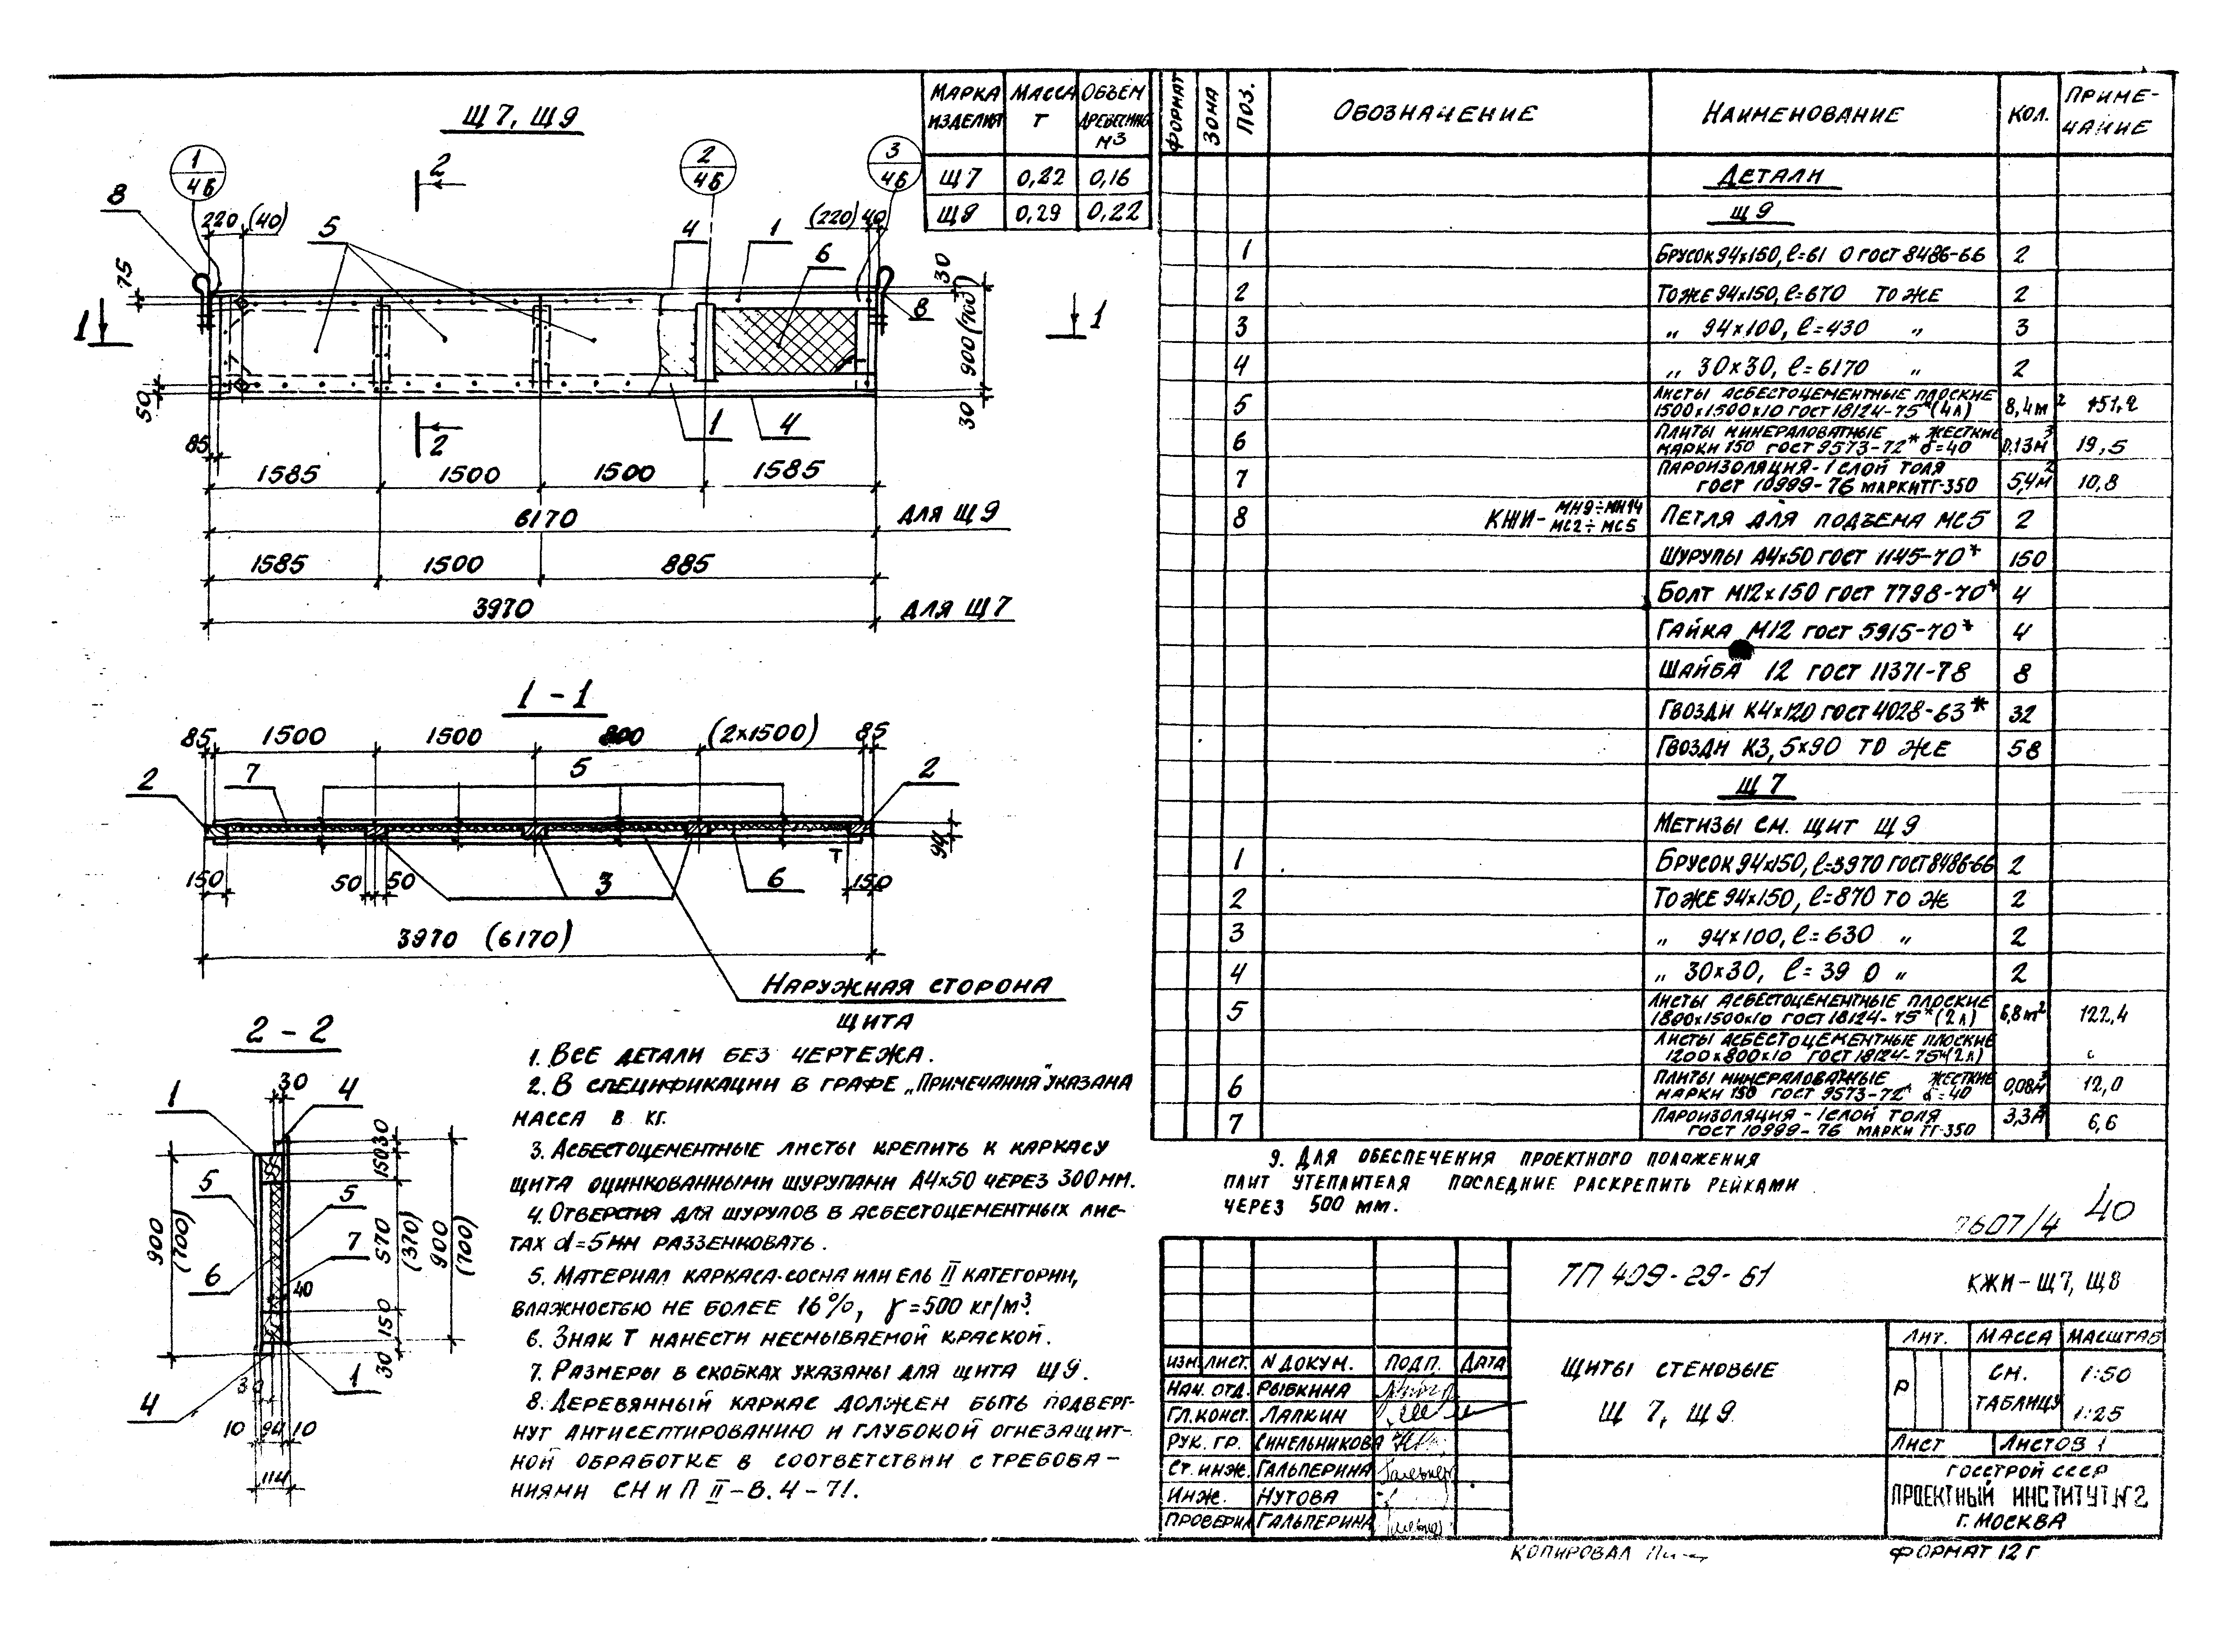 Щ7, Щ9
МАРКА ИЗДЕЛИЯ МАССА Т ОБЪЕМ ДРЕВЕСИНЫ М3
Щ7 0,22 0,16
Щ9 0,29 0,22
1 4Б
2 4Б
3 4Б
2
8
220 (40)
5
4
1
(220) 40
6
75
30
8
1
1
900 (700)
50
85
2
1
4
30
1585 1500 1500 1585
6170 ДЛЯ Щ9
1585 1500 885
3970 ДЛЯ Щ7
1 - 1
85 1500 1500 800 (2х1500) 85
2 7 5 2
94
Т
150 50 50 3 6 150
3970 (6170)
НАРУЖНАЯ СТОРОНА
ЩИТА
2 - 2
30
1 4
5 5
7
6
40
900 (700)
30
150
570 (370)
150
30
900 (700)
4 1
10 94 10
114
1. ВСЕ ДЕТАЛИ БЕЗ ЧЕРТЕЖА.
2. В СПЕЦИФИКАЦИИ В ГРАФЕ „ПРИМЕЧАНИЯ" УКАЗАНА
МАССА В КГ.
3. АСБЕСТОЦЕМЕНТНЫЕ ЛИСТЫ КРЕПИТЬ К КАРКАСУ
ЩИТА ОЦИНКОВАННЫМИ ШУРУПАМИ А4х50 ЧЕРЕЗ 300 ММ.
4. ОТВЕРСТИЯ ДЛЯ ШУРУПОВ В АСБЕСТОЦЕМЕНТНЫХ ЛИС-
ТАХ d=5 ММ РАЗЗЕНКОВАТЬ.
5. МАТЕРИАЛ КАРКАСА-СОСНА ИЛИ ЕЛЬ II КАТЕГОРИИ,
ВЛАЖНОСТЬЮ НЕ БОЛЕЕ 16%, γ=500 КГ/М3.
6. ЗНАК Т НАНЕСТИ НЕСМЫВАЕМОЙ КРАСКОЙ.
7. РАЗМЕРЫ В СКОБКАХ УКАЗАНЫ ДЛЯ ЩИТА Щ9.
8. ДЕРЕВЯННЫЙ КАРКАС ДОЛЖЕН БЫТЬ ПОДВЕРГ-
НУТ АНТИСЕПТИРОВАНИЮ И ГЛУБОКОЙ ОГНЕЗАЩИТ-
НОЙ ОБРАБОТКЕ В СООТВЕТСТВИИ С ТРЕБОВА-
НИЯМИ СН и П II-В.4-71.
ФОРМАТ ЗОНА ПОЗ. ОБОЗНАЧЕНИЕ НАИМЕНОВАНИЕ КОЛ. ПРИМЕ-ЧАНИЕ
ДЕТАЛИ
Щ9
1 БРУСОК 94х150, ℓ=61 0 ГОСТ 8486-66 2
2 ТО ЖЕ 94х150, ℓ=670 ТО ЖЕ 2
3 „ 94х100, ℓ=430 „ 3
4 „ 30х30, ℓ=6170 „ 2
5 ЛИСТЫ АСБЕСТОЦЕМЕНТНЫЕ ПЛОСКИЕ
1500х1500х10 ГОСТ 18124-75* (4л) 8,4м2 151,2
6 ПЛИТЫ МИНЕРАЛОВАТНЫЕ ЖЕСТКИЕ
МАРКИ 150 ГОСТ 9573-72* δ=40 0,13м3 19,5
7 ПАРОИЗОЛЯЦИЯ-1 СЛОЙ ТОЛЯ
ГОСТ 10999-76 МАРКИ ТГ-350 5,4м2 10,8
8 КЖИ- МН9÷МН14 МС2÷МС5 ПЕТЛЯ ДЛЯ ПОДЪЕМА МС5 2
ШУРУПЫ А4х50 ГОСТ 1145-70* 150
БОЛТ М12х150 ГОСТ 7798-70* 4
ГАЙКА М12 ГОСТ 5915-70* 4
ШАЙБА 12 ГОСТ 11371-78 8
ГВОЗДИ К4х120 ГОСТ 4028-63* 32
ГВОЗДИ К3,5х90 ТО ЖЕ 58
Щ7
МЕТИЗЫ СМ. ЩИТ Щ9
1 БРУСОК 94х150, ℓ=3970 ГОСТ 8486-66 2
2 ТО ЖЕ 94х150, ℓ=870 ТО Ж 2
3 „ 94х100, ℓ=630 „ 2
4 „ 30х30, ℓ=39 0 „ 2
5 ЛИСТЫ АСБЕСТОЦЕМЕНТНЫЕ ПЛОСКИЕ
1800х1500х10 ГОСТ 18124-75* (2л) 6,8м2 122,4
ЛИСТЫ АСБЕСТОЦЕМЕНТНЫЕ ПЛОСКИЕ
1200х800х10 ГОСТ 18124-75*(2л)
6 ПЛИТЫ МИНЕРАЛОВАТНЫЕ ЖЕСТКИЕ
МАРКИ 150 ГОСТ 9573-72 δ=40 0,08м3 12,0
7 ПАРОИЗОЛЯЦИЯ - 1 СЛОЙ ТОЛЯ
ГОСТ 10999-76 МАРКИ ТГ-350 3,3 6,6
9. ДЛЯ ОБЕСПЕЧЕНИЯ ПРОЕКТНОГО ПОЛОЖЕНИЯ
ПЛИТ УТЕПЛИТЕЛЯ ПОСЛЕДНИЕ РАСКРЕПИТЬ РЕЙКАМИ
ЧЕРЕЗ 500 ММ.
40
ТП 409-29-61
КЖИ-Щ7, Щ8
ИЗМ ЛИСТ. N ДОКУМ. ПОДП. ДАТА
НАЧ. ОТД. РЫБКИНА
ГЛ. КОНСТ. ЛАПКИН
РУК. ГР. СИНЕЛЬНИКОВА
СТ. ИНЖ. ГАЛЬПЕРИНА
ИНЖ. НУТОВА
ПРОВЕРИЛ ГАЛЬПЕРИНА
ЩИТЫ СТЕНОВЫЕ
Щ7, Щ9
ЛИТ. МАССА МАСШТАБ
Р СМ. ТАБЛИЦУ 1:50 1:25
ЛИСТ ЛИСТОВ 1
ГОССТРОЙ СССР
ПРОЕКТНЫЙ ИНСТИТУТ N2
Г. МОСКВА
КОПИРОВАЛ
ФОРМАТ 12 Г